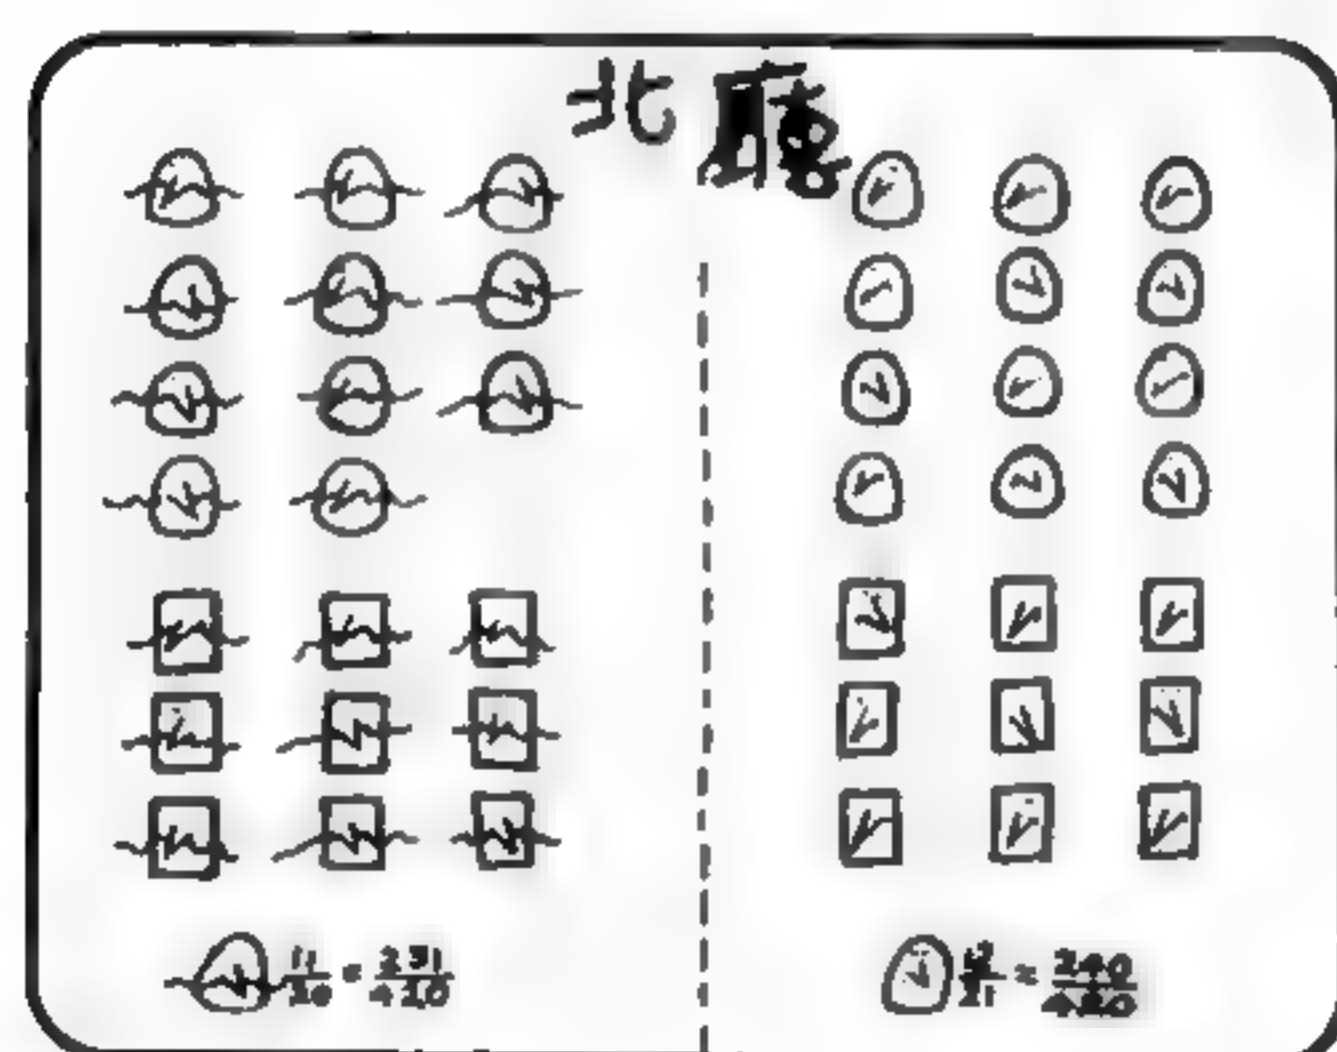 北廳
11/20 = 231/420
12/21 = 240/420